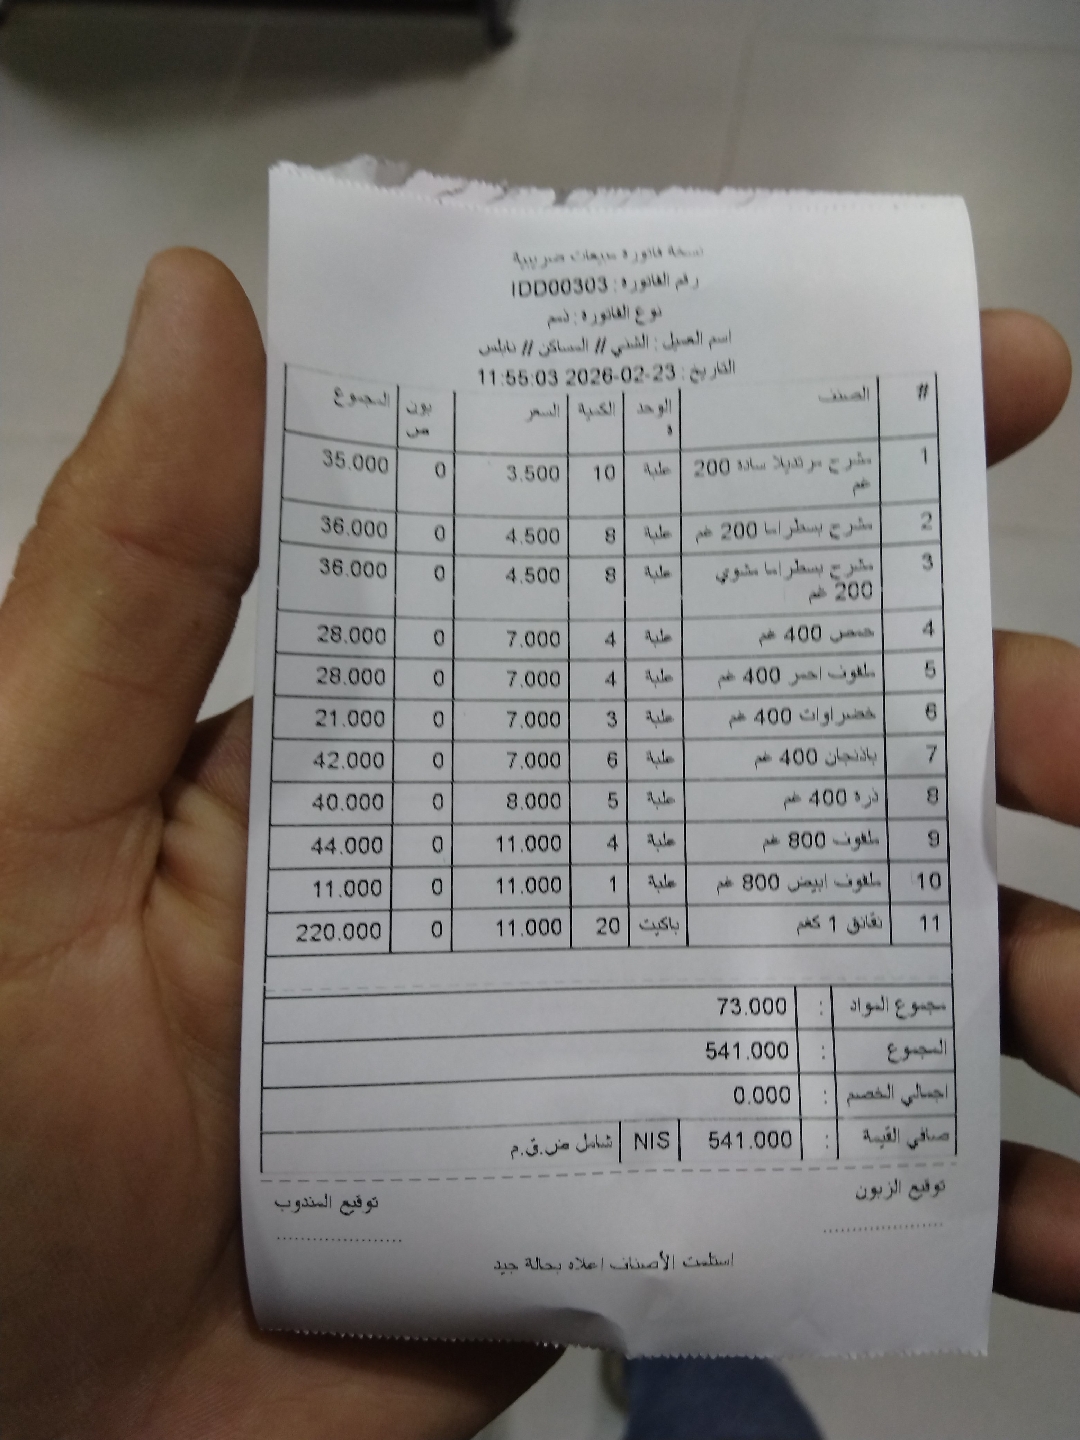 نسخة فاتورة مبيعات ضريبية
رقم الفاتورة : IDD00303
نوع الفاتورة : ذمم
اسم العميل : الشني // المساكن // نابلس
التاريخ : 23-02-2026 11:55:03
# الصنف الوحدة الكمية السعر بونص المجموع
1 مشرح مرتديلا سادة 200 غم علبة 10 3.500 0 35.000
2 مشرح بسطراما 200 غم علبة 8 4.500 0 36.000
3 مشرح بسطراما مشوي 200 غم علبة 8 4.500 0 36.000
4 حمص 400 غم علبة 4 7.000 0 28.000
5 ملفوف احمر 400 غم علبة 4 7.000 0 28.000
6 خضراوات 400 غم علبة 3 7.000 0 21.000
7 باذنجان 400 غم علبة 6 7.000 0 42.000
8 ذرة 400 غم علبة 5 8.000 0 40.000
9 ملفوف 800 غم علبة 4 11.000 0 44.000
10 ملفوف ابيض 800 غم علبة 1 11.000 0 11.000
11 نقانق 1 كغم باكيت 20 11.000 0 220.000
مجموع المواد : 73.000
المجموع : 541.000
اجمالي الخصم : 0.000
صافي القيمة : 541.000 NIS شامل ض.ق.م
توقيع الزبون توقيع المندوب
استلمت الأصناف اعلاه بحالة جيد